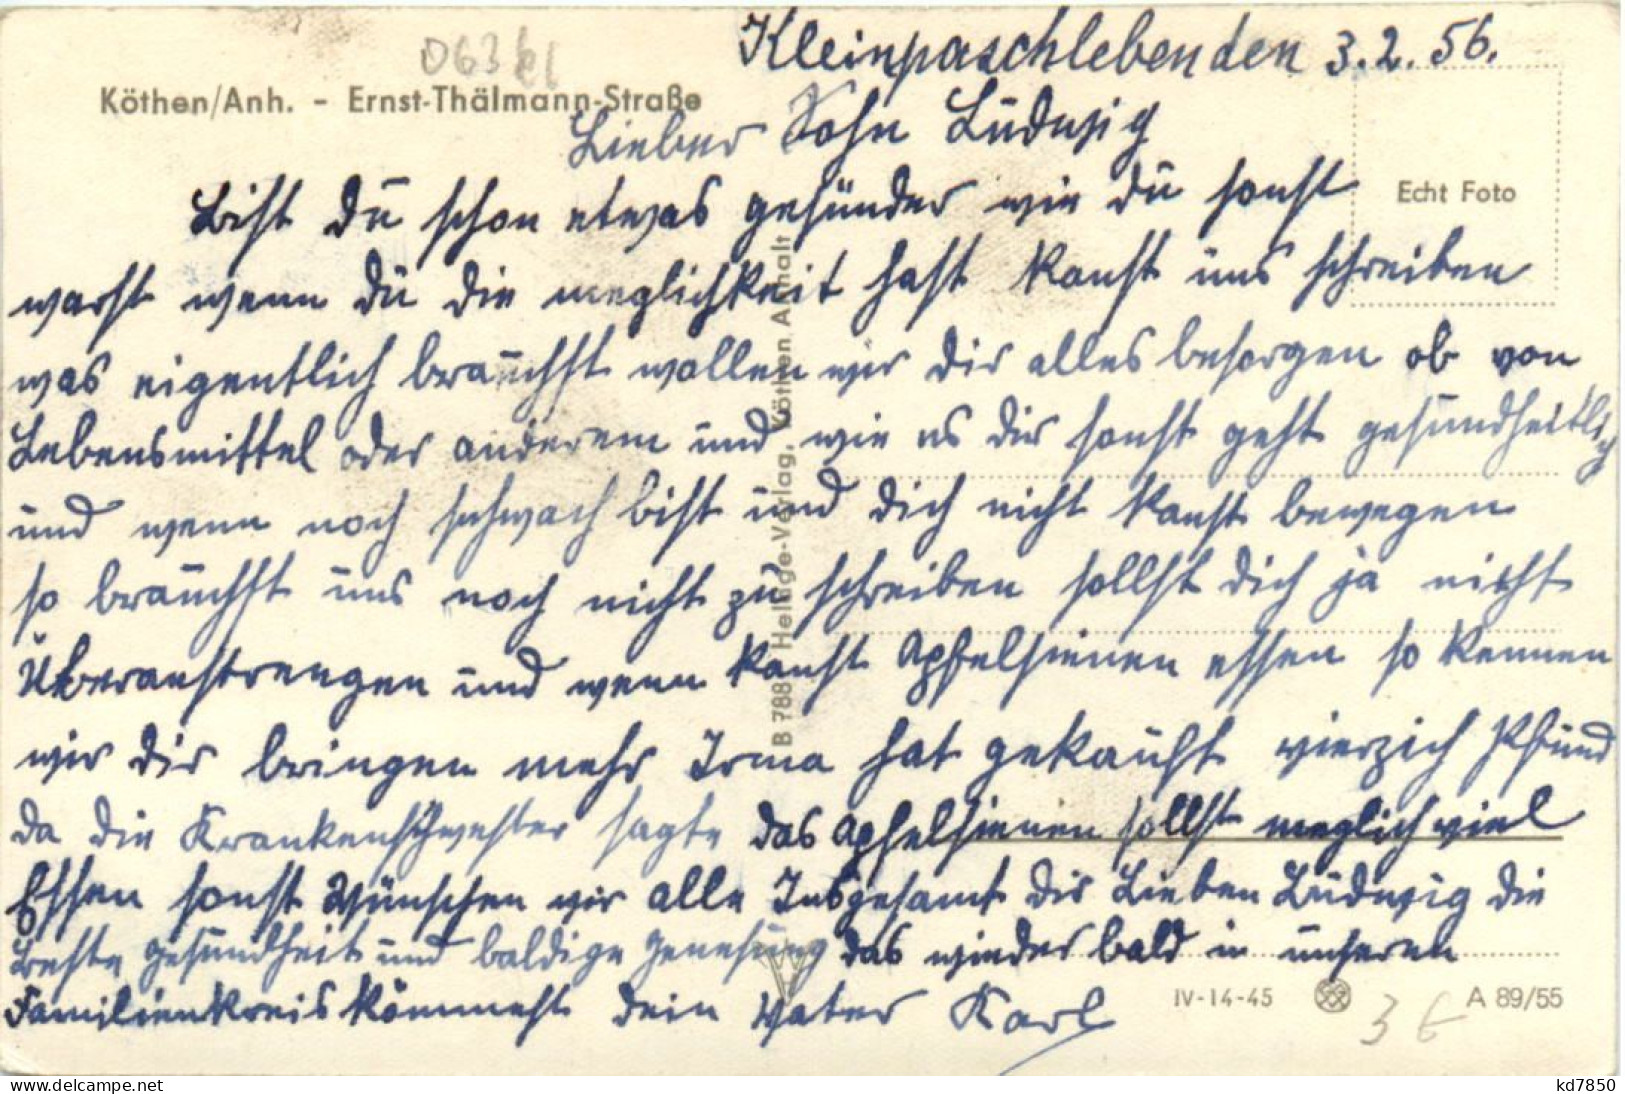 063
Kleinpaschleben den 3.2.56.
Köthen/Anh. - Ernst-Thälmann-Straße
Lieber Sohn Ludwig
Echt Foto
Bist du schon etwas gesünder wie du sonst
warst wenn du die meglichkeit hast kanst uns schreiben
was eigentlich brauchst wollen wir dir alles besorgen ob von
Lebensmittel oder anderem und wie es dir sonst geht gesundheitlich
und wenn noch schwach bist und dich nicht kanst bewegen
so brauchst uns noch nicht zu schreiben sollst dich ja nicht
Überanstrengen und wenn kanst Apfelsienen essen so kennen
wir dir bringen mehr Irma hat gekauft vierzich Pfund
da die Krankenschwester sagte das Apfelsienen sollst meglich viel
Essen sonst Wünschen wir alle Insgesamt dir Lieben Ludwig die
Beste gesundheit und baldige genesung das wieder bald in unseren
Familienkreis kömmest dein Vater Karl
B 788 Heldge-Verlag, Köthen Anhalt
IV-14-45 A 89/55
36
www.delcampe.net
kd7850